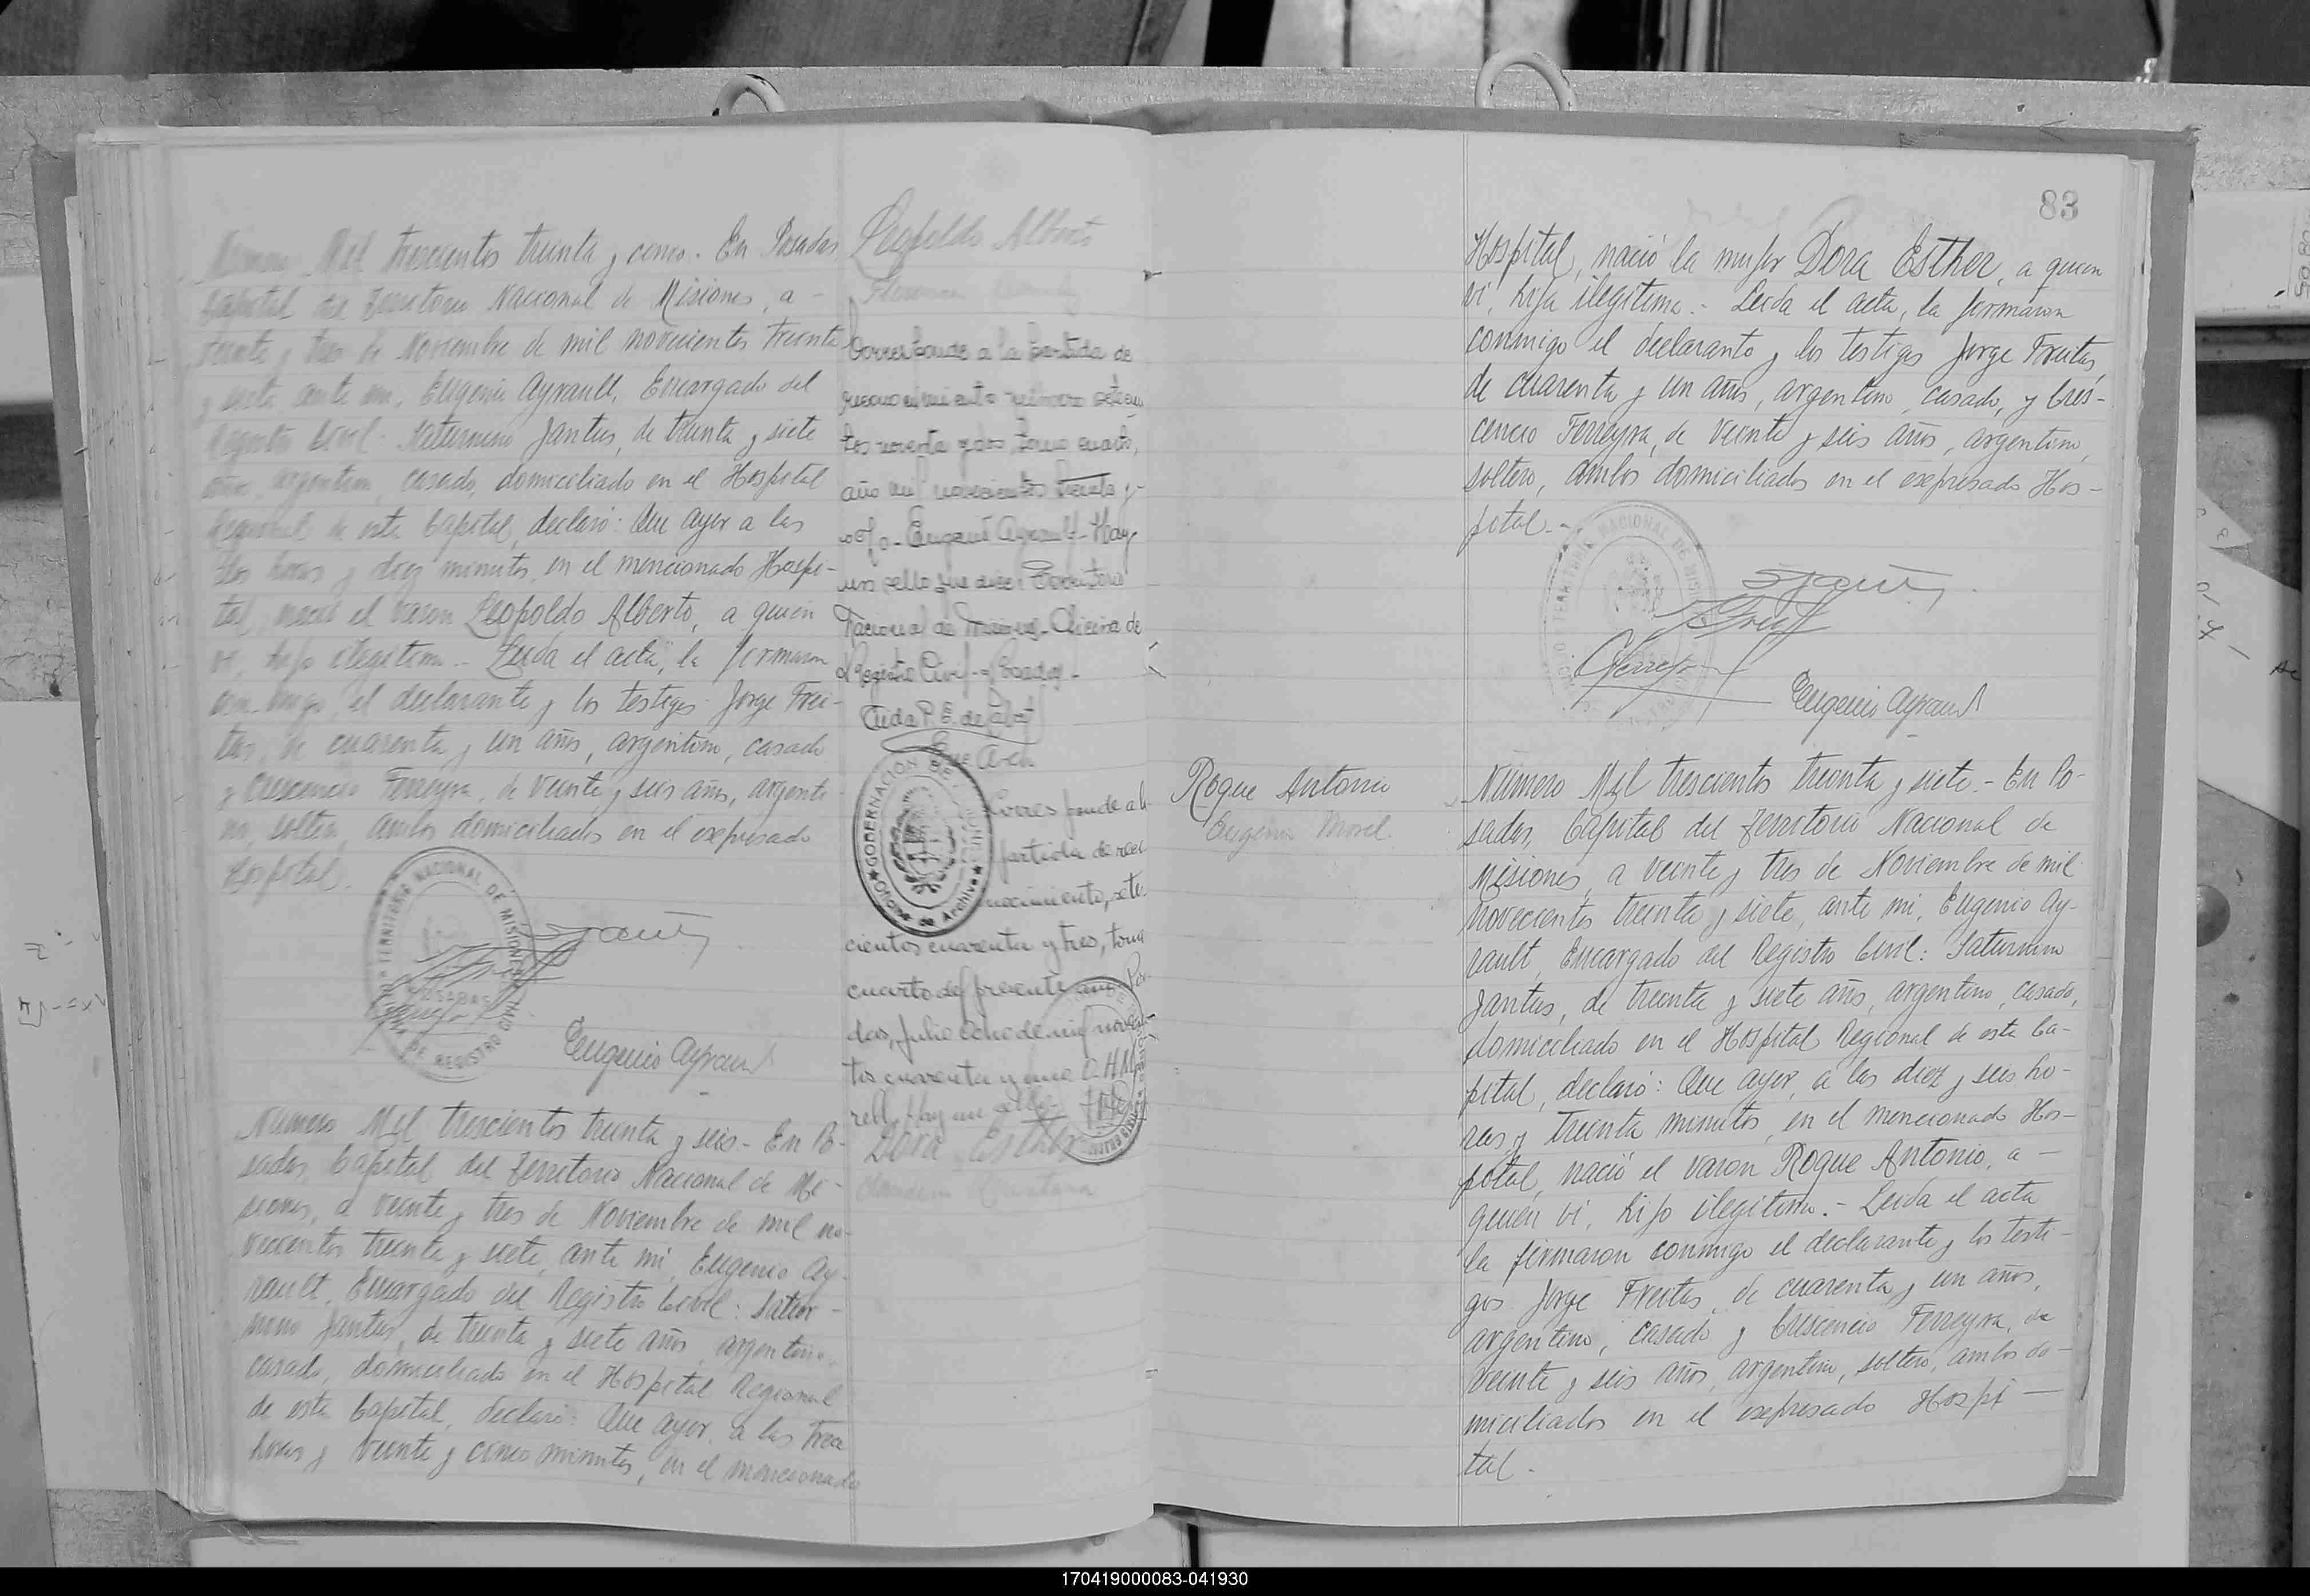 Número Mil trescientos treinta y cinco. En Posadas
Capital del Territorio Nacional de Misiones, a -
veinte y tres de Noviembre de mil novecientos treinta
y siete ante mi, Eugenio Ayrault, Encargado del
Registro Civil: Saturnino Jantus, de treinta y siete
años argentino, casado, domiciliado en el Hospital
Regional de esta Capital, declaró: Que ayer a las
dos horas y diez minutos, en el mencionado Hospi-
tal, nació el varon Leopoldo Alberto, a quien
vi, hijo ilegitimo.- Leida el acta, la firmaron
conmigo, el declarante y los testigos Jorge Frei-
tas, de cuarenta y un años, argentino, casado
y Crescencio Ferreyra, de veinte y seis años, argenti-
no, soltero, ambos domiciliados en el expresado
Hospital.
TERRITORIO NACIONAL DE MISIONES
POSADAS
DE REGISTRO
Eugenio Ayrault
Número Mil trescientos treinta y seis - En Po-
sadas, Capital del Territorio Nacional de Mi-
siones, a veinte y tres de Noviembre de mil no-
vecientos treinta y siete, ante mi, Eugenio Ay-
rault, Encargado del Registro Civil: Satur-
nino Jantus, de treinta y siete años, argentino,
casado, domiciliado en el Hospital Regional
de esta Capital, declaró: Que ayer, a las trece
horas y veinte y cinco minutos, en el mencionado
Leopoldo Alberto
Corresponde a la partida de
reconocimiento número setecien
tos noventa y dos, tomo cuarto,
año mil novecientos treinta y
ocho - Eugenio Ayrault - Hay
un sello que dice: Territorio
Nacional de Misiones - Oficina de
Registro Civil - Posadas -
GOBERNACION DE MISIONES
Oficina de Archivo
Corresponde a la
partida de reco
nocimiento, sete-
cientos cuarenta y tres, tomo
cuarto del presente año Posa-
das, Julio ocho de mil novecien
tos cuarenta y uno O. H. M
rell, Hay un sello
Dora Esther
83
Hospital, nació la mujer Dora Esther, a quien
vi, hija ilegitima.- Leida el acta, la firmaron
conmigo el declarante y los testigos Jorge Freitas,
de cuarenta y un años, argentino, casado, y Cres-
cencio Ferreyra, de veinte y seis años, argentino,
soltero, ambos domiciliados en el expresado Hos-
pital.-
TERRITORIO NACIONAL DE MISIONES
Eugenio Ayrault
Roque Antonio
Eugenia Morel.
Número Mil trescientos treinta y siete.- En Po-
sadas, Capital del Territorio Nacional de
Misiones, a veinte y tres de Noviembre de mil
novecientos treinta y siete, ante mi, Eugenio Ay-
rault, Encargado del Registro Civil: Saturnino
Jantus, de treinta y siete años, argentino, casado,
domiciliado en el Hospital Regional de esta Ca-
pital, declaró: Que ayer, a las diez y seis ho-
ras y treinta minutos, en el mencionado Hos-
pital, nació el varon Roque Antonio, a -
quien vi, hijo ilegitimo.- Leida el acta
la firmaron conmigo el declarante y los testi-
gos Jorge Freitas, de cuarenta y un años,
argentino, casado y Crescencio Ferreyra, de
veinte y seis años, argentino, soltero, ambos do-
miciliados en el expresado Hospi-
tal.-
170419000083-041930